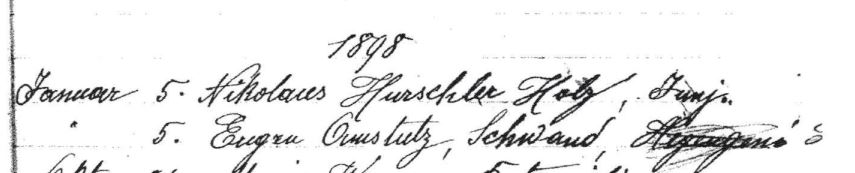 1898
Januar 5. Nikolaus Hurschler Holz, Junj.
" 5. Eugen Amstutz, Schwand,